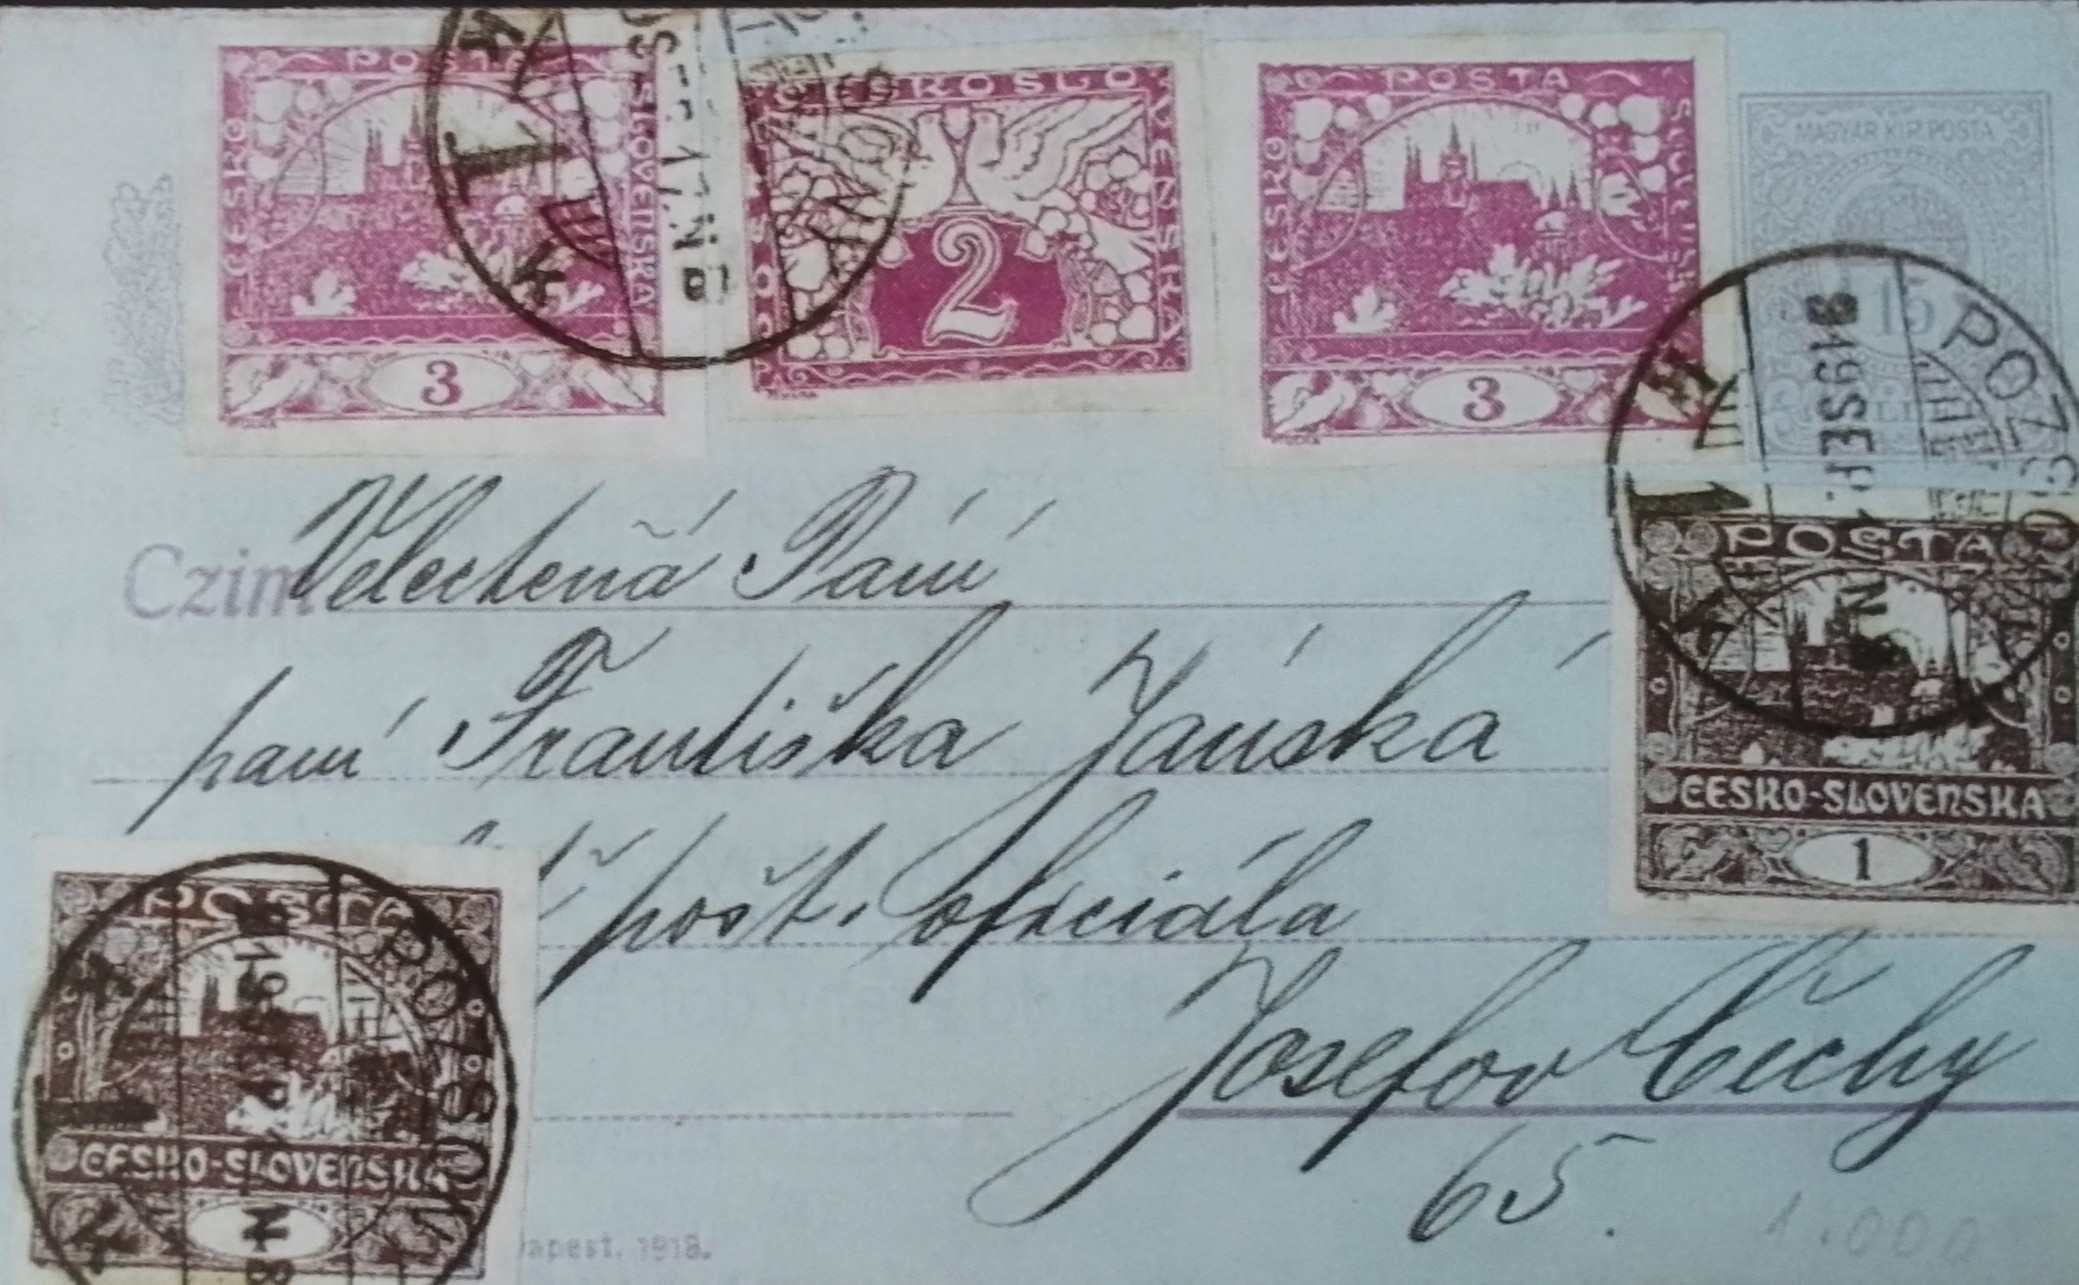 POSTA
ČESKO
SLOVENSKA
3
ČESKOSLOVENSKA
2
POSTA
ČESKO
SLOVENSKA
3
MAGYAR KIR. POSTA
15
POZSONY
919 SEP.
1
POSTA
ČESKO-SLOVENSKA
1
Czim
Velectěná Paní
paní Františka Jánská
pošt. oficiála
Josefov Čechy
65.
POSTA
ČESKO-SLOVENSKA
POZSONY
1
apest. 1918.
1.000